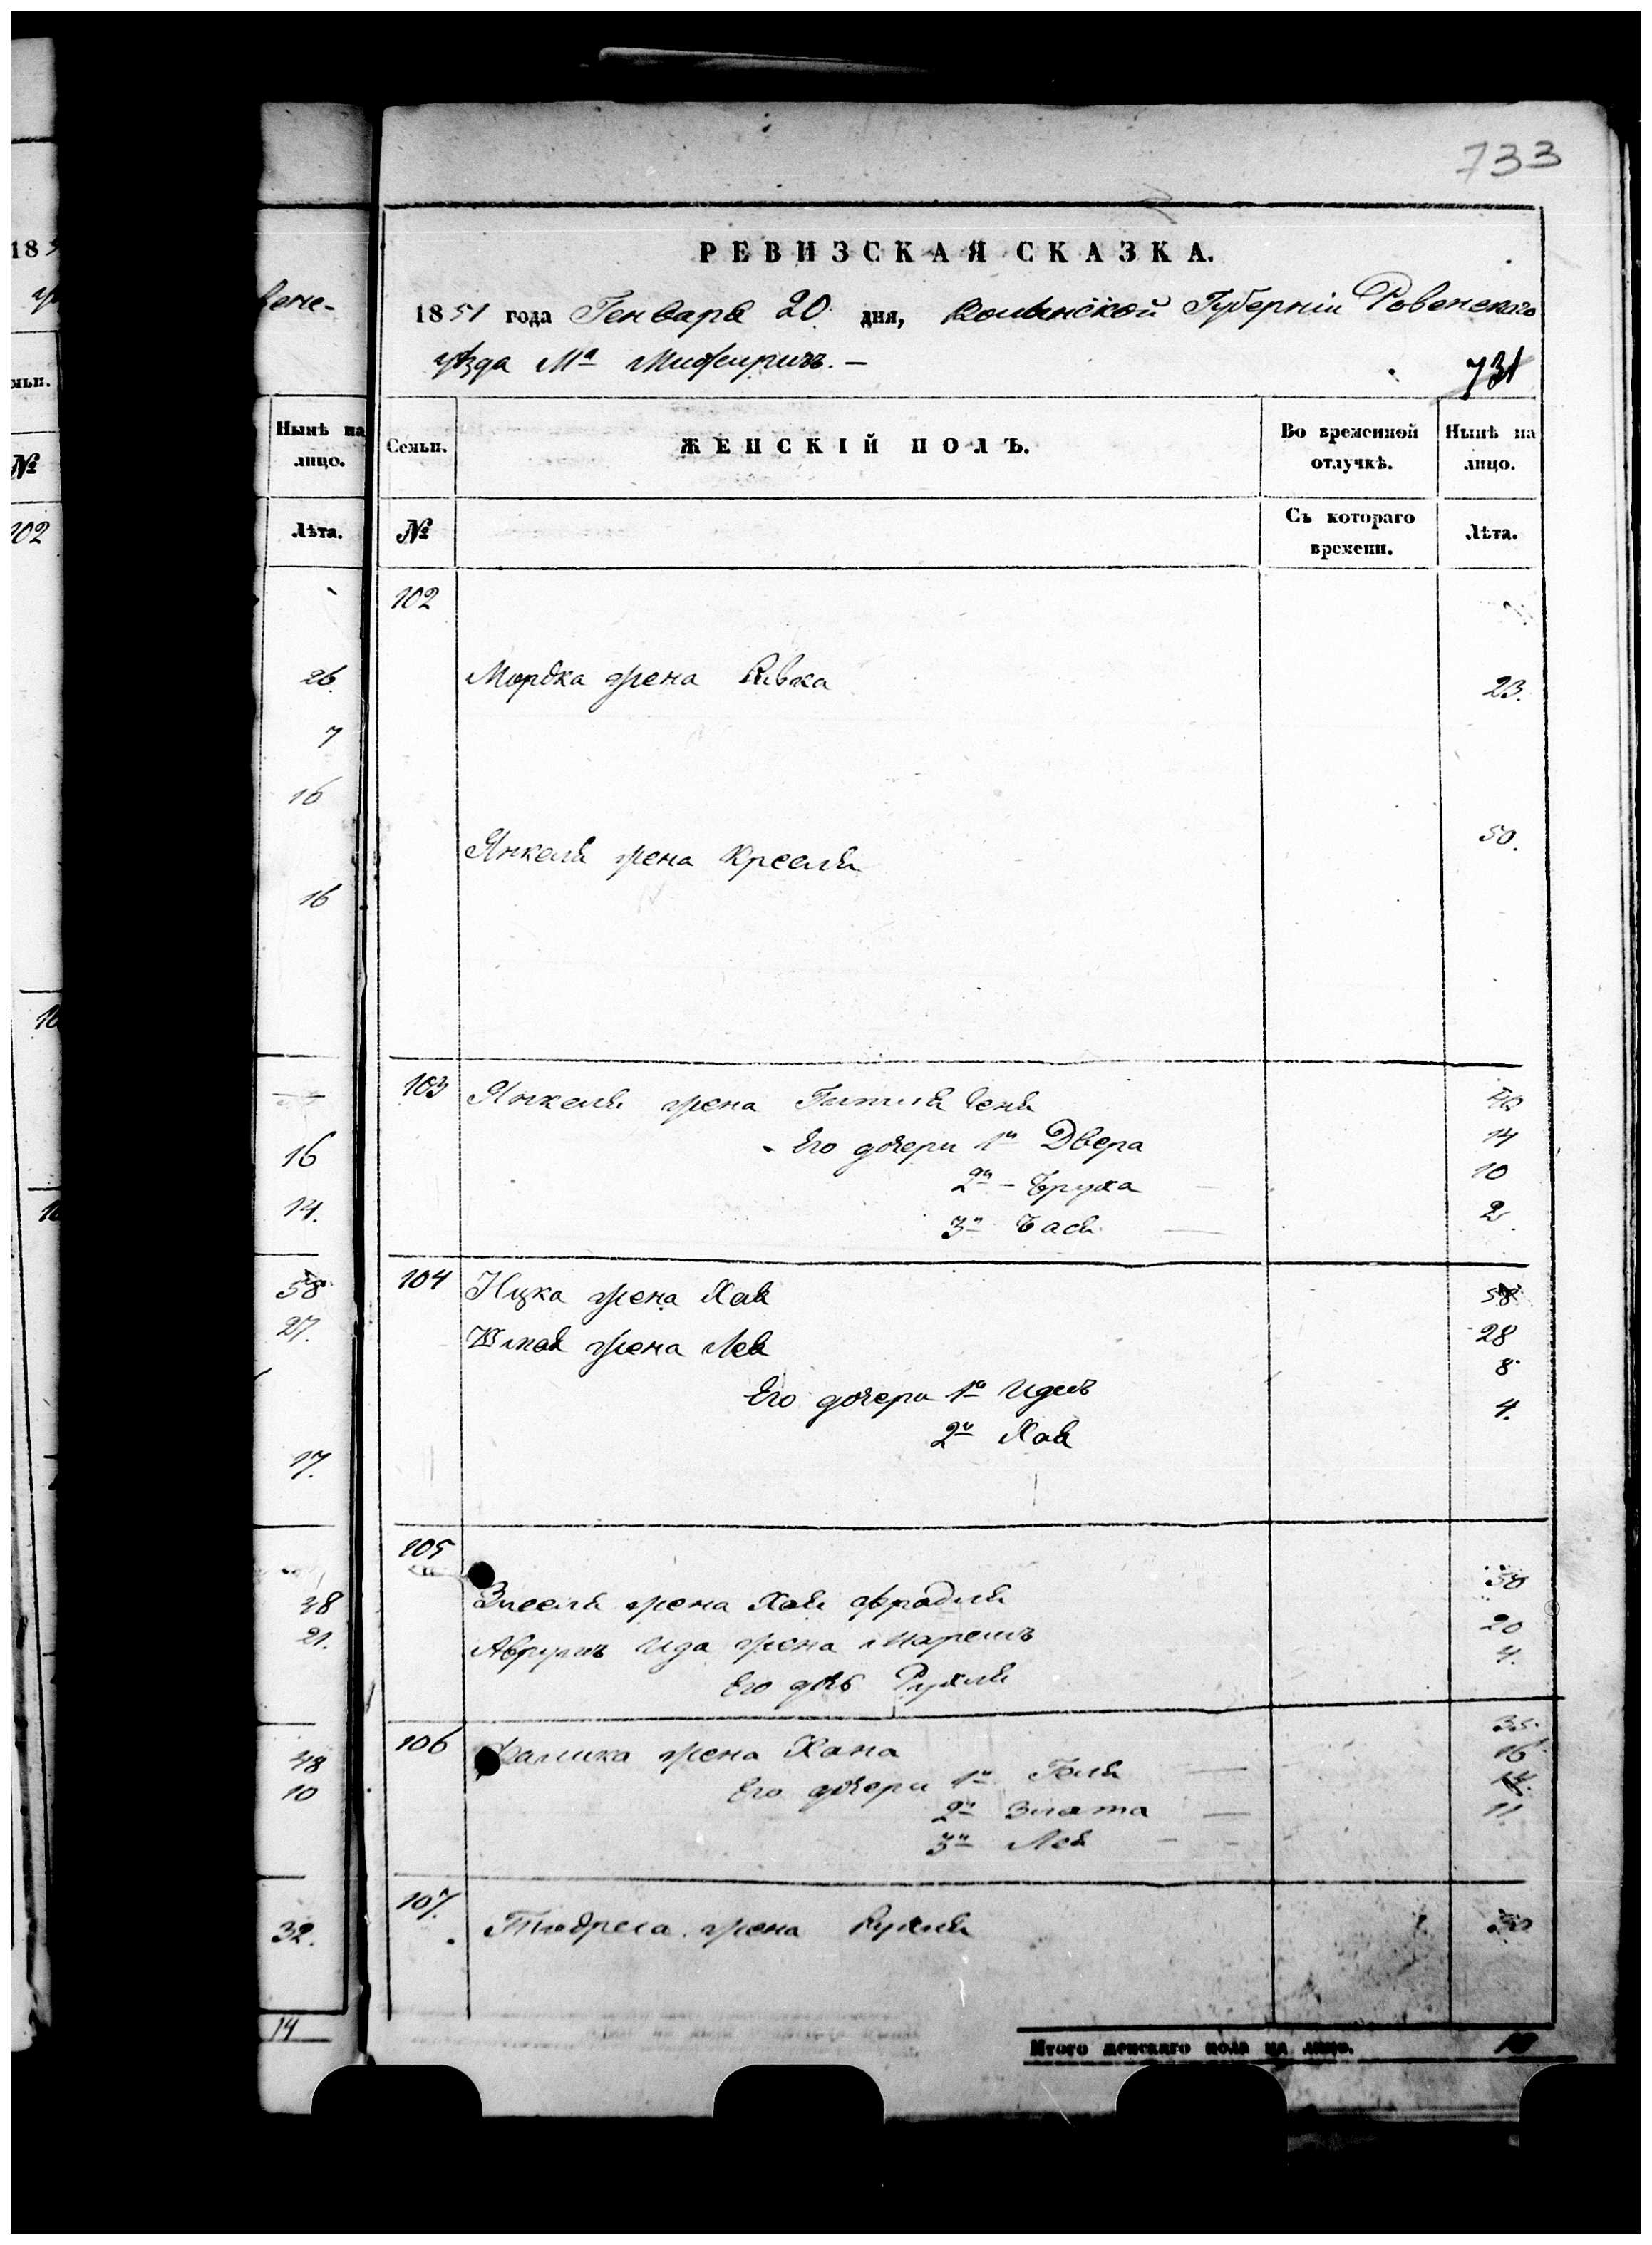 733
РЕВИЗСКАЯ СКАЗКА.
1851 года Генваря 20 дня, Волынской Губерніи Ровенского
уѣзда Мᵃ Межиричъ. —
731
Семьи. ЖЕНСКІЙ ПОЛЪ. Во временной отлучкѣ. Нынѣ на лицо.
№ Съ котораго времени. Лѣта.
102
Мордка жена Ривка 23.
Янкеля жена Крейсля 50.
103 Янкеля жена Гитля 40
Его дочери 1ᵃ Двера 14
2ᵃ — Бруха 10
3ᵃ Бася 2
104 Ицка жена Хая 58
жена Лея 28
Его дочери 1ᵃ 8
2ᵃ Хая 4.
105
жена Хая Фрадля 50
жена 20
Его дочь Рухля 4.
106 Фалика жена Хана 35.
Его дочери 1ᵃ 16
2ᵃ Злата
3ᵃ Лея 11
107. Тодреса жена Рухля
Итого женскаго пола на лицо.
185
вене-
Нынѣ на лицо.
Лѣта.
№
102
26.
7
16
16
16
14.
58
27.
17.
48
21.
48
10
32.
14